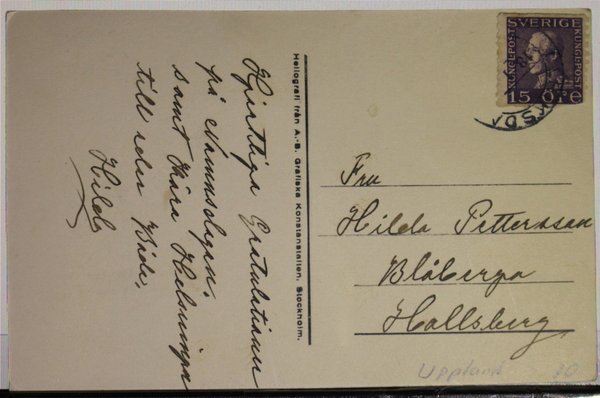 Hjärtliga Gratulationer
på Namnsdagen,
samt kära Helsningar
till eder Båda,
Hild
Heliografi från A.-B. Grafiska Konstanstalten, Stockholm.
SVERIGE
KUNGLEPOST
KUNGLEPOST
15 ÖRE
Fru
Hilda Pettersson
Blåberga
Hallsberg
Uppland 30